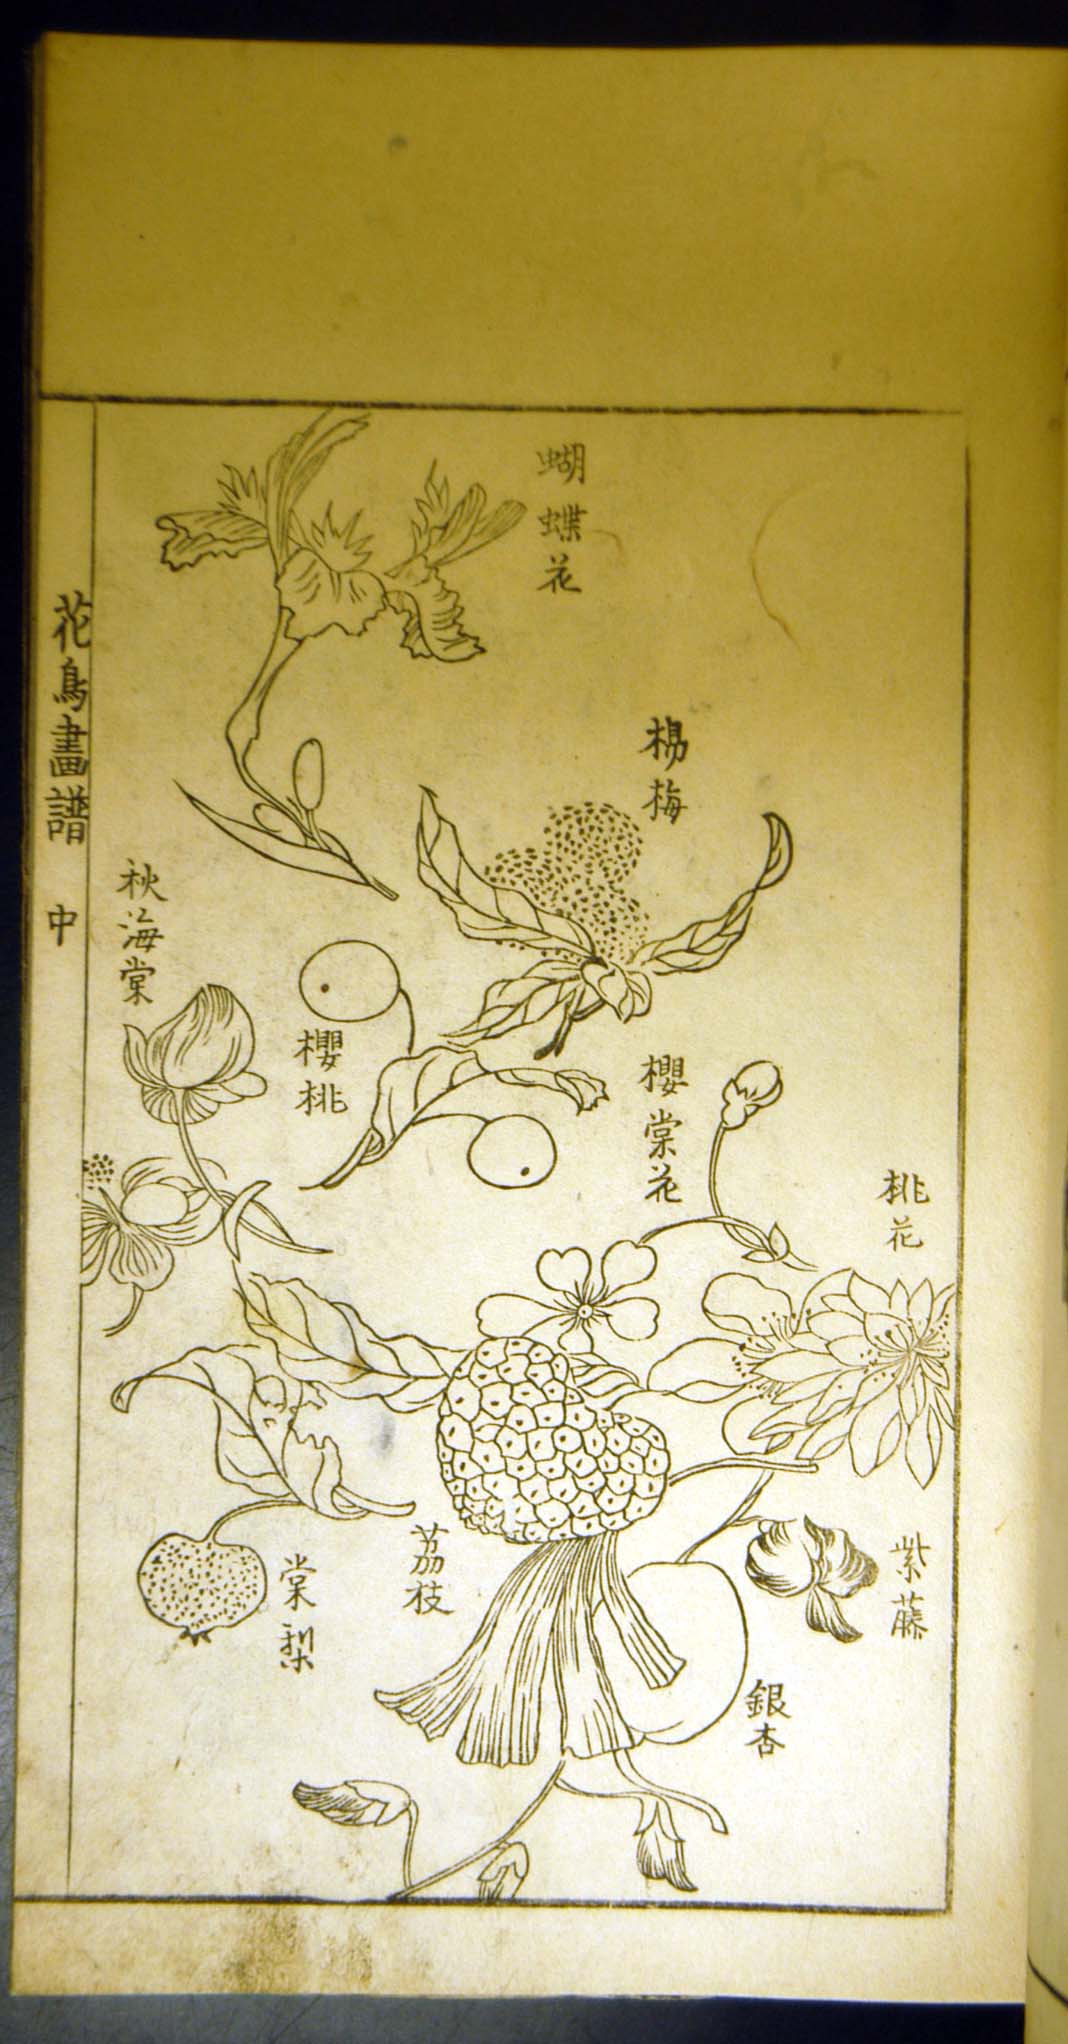 蝴蝶花
楊梅
櫻棠花
桃花
紫藤
銀杏
荔枝
櫻桃
棠梨
秋海棠
花鳥畫譜 中